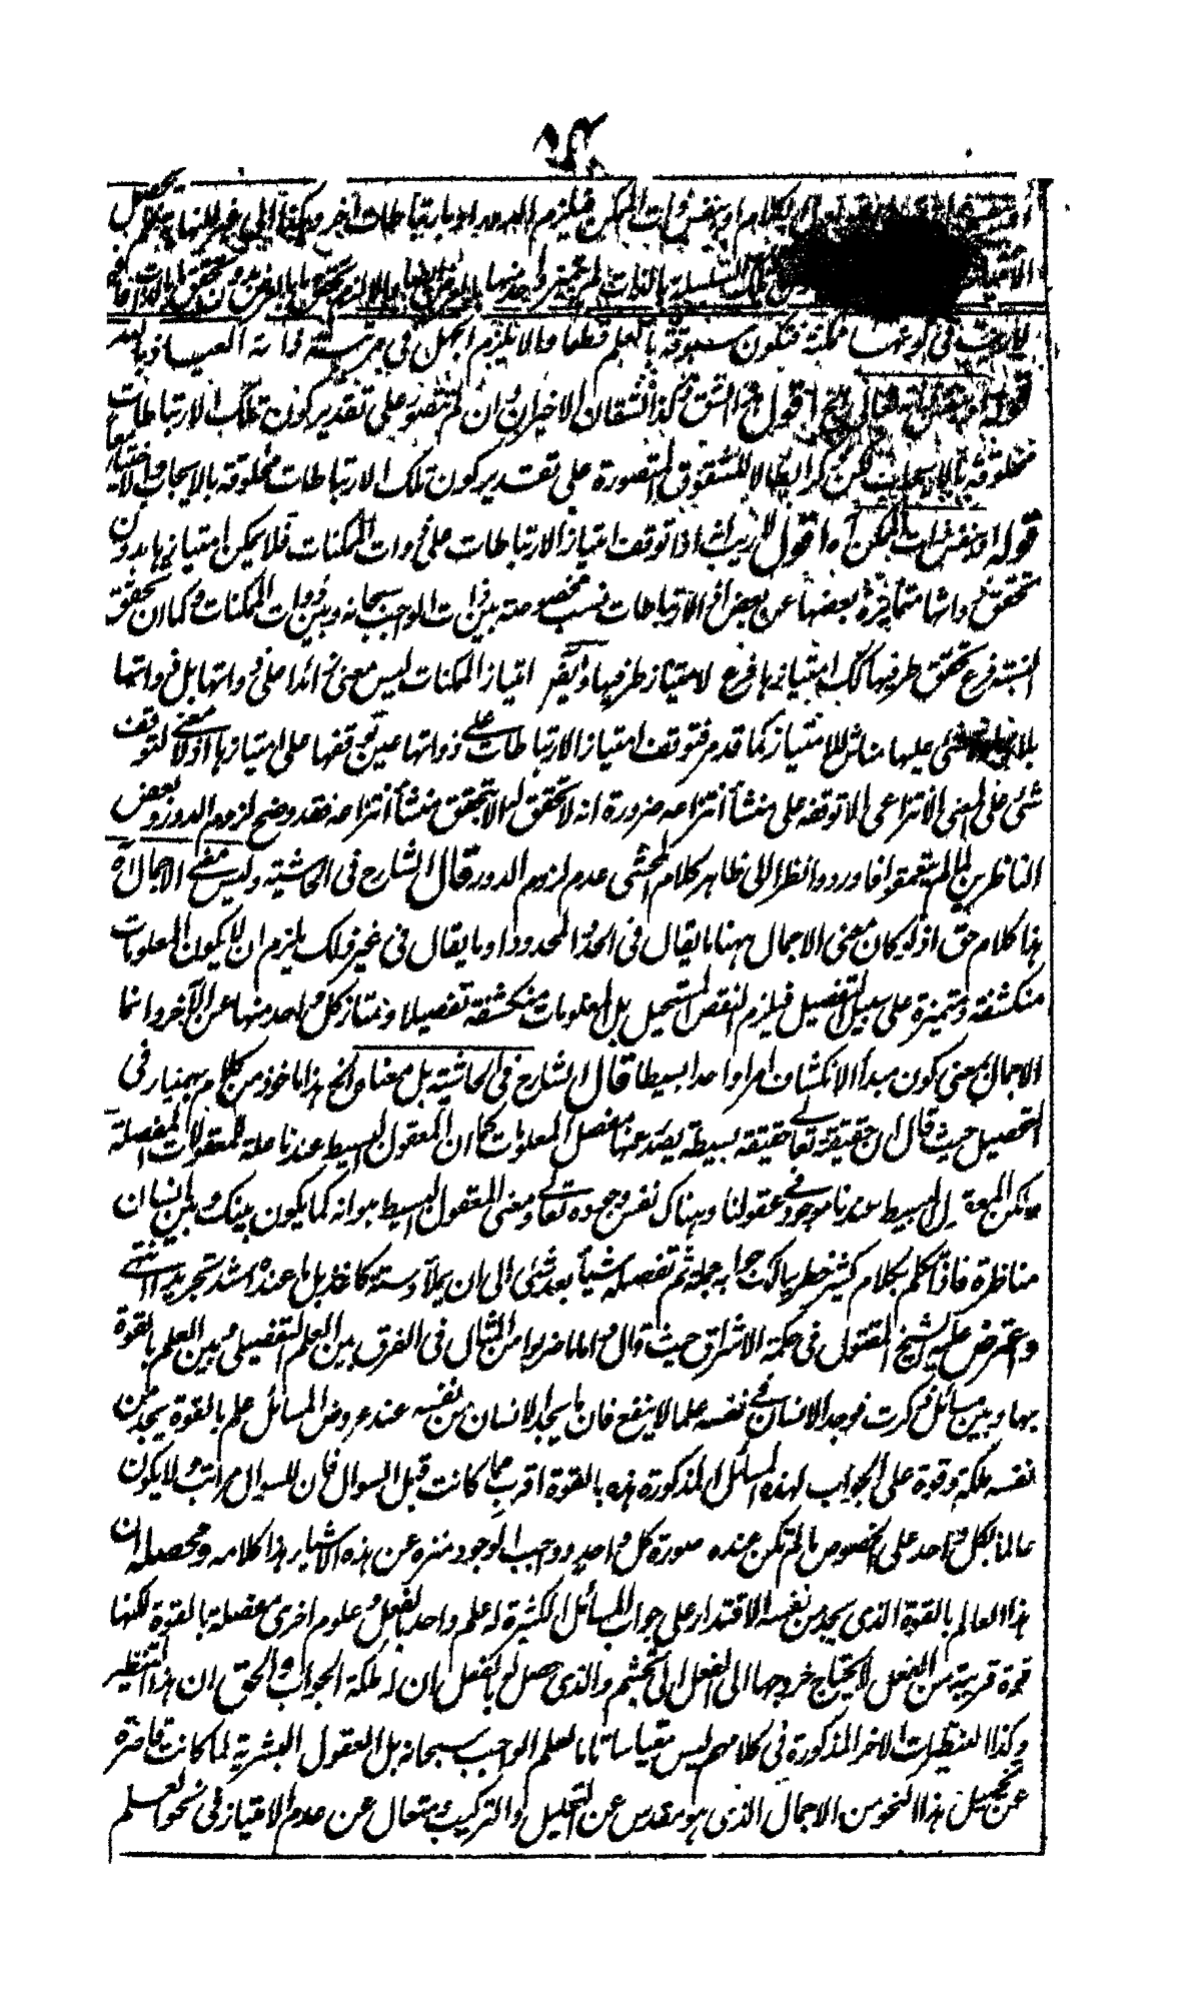 او بنفس ذات الممكن فيلزم الدور او بارتباطات اخر وهكذا الى غير النهاية فلم يحصل
تلك السلسلة بالذات لم يتميز واحد منها
ممكنة فتكون مسبوقة بالعلم قطعا والا يلزم الجهل في مرتبة ذاته العياذ بالله
قوله اقول هذا الشق وكذا الشقان الاخيران وان لم تتصور على تقدير كون تلك الارتباطات
مخلوقة بالايجاب لكن ذكر ابطالا للشقوق المتصورة على تقدير كون تلك الارتباطات مخلوقة بالايجاب والاختيار معا
قوله او بنفس ذات الممكن آه اقول لا ريب انه اذا توقف امتياز الارتباطات على ذوات الممكنات فلا يمكن امتيازها بدون
تحققها وانها متأخرة بعضها عن بعض اذ الارتباطات نسب مخصوصة بين ذات الواجب سبحانه وبين ذوات الممكنات وكما ان تحقق
النسبة فرع تحقق طرفيها كك امتيازها فرع لامتياز طرفيها امتياز الممكنات ليس معنى زائدا على ذواتها بل ذواتها
بلا زيادة معنى عليها مناشئ للامتياز كما قد مر فتوقف امتياز الارتباطات على ذواتها عين توقفها على امتيازها اذ لا معنى لتوقف
شئ على المعنى الانتزاعي الا توقفه على منشأ انتزاعه ضرورة انه لا تحقق له الا بتحقق منشأ انتزاعه فقد وضح لزوم الدور وبعض
الناظرين لما لم يتعمقوا فاوردوا نظرا الى ظاهر كلام المحشى عدم لزوم الدور قال الشارح فى الحاشية وليس معنى الاجمال آه
هذا كلام حق اذ لو كان معنى الاجمال ههنا ما يقال فى الحد والمحدود او ما يقال فى غير ذلك يلزم ان لا يكون المعلومات
منكشفة ومتميزة على سبيل التفصيل فيلزم النقص المستحيل بل المعلومات منكشفة تفصيلا وممتاز كل واحد منها عن الآخر وانما
الاجمال بمعنى كون مبدأ الانكشاف امرا واحدا بسيطا قال الشارح فى الحاشية بل معناه الخ هذا ماخوذ من كلام بهمنيار فى
التحصيل حيث قال ان حقيقة تعالى حقيقة بسيطة يصدر عنها مفصل المعلومات كما ان المعقول البسيط عندنا علة للمعقولات المفصلة
لكن المعقول البسيط عندنا موجود فى عقولنا وهناك نفس وجوده تعالى ومعنى المعقول البسيط هو انه كما يكون بينك وبين انسان
مناظرة فاذا تكلم بكلام كثير خطر ببالك جوابه جملة ثم تفصله شيئا بعد شئ الى ان يملأ دستة كاغذ بل ما عنده اشد تجريدا انتهى
واعترض عليه الشيخ المقتول فى حكمة الاشراق حيث قال واما ما ضربوا من المثال فى الفرق بين العلم التفصيلى وبين العلم بالقوة
بها وبين مسائل ذكرت فوجد الانسان فى نفسه علما لا ينفع فان ما يجد الانسان من نفسه عند عروض المسائل علم بالقوة يجد من
نفسه ملكة وقوة على الجواب لهذه المسائل المذكورة هذه بالقوة اقرب مما كانت قبل السوال فان للسوال مراتب ولا يكون
عالما بكل واحد على الخصوص ما لم تكن عنده صورة كل واحد وواجب الوجود منزه عن هذه الاشياء هذا كلامه ومحصله ان
هذا العالم بالقوة الذى يجد من نفسه الاقتدار على جواب المسائل الكثيرة له علم واحد بالفعل وعلوم اخرى مفصلة بالقوة لكنها
قوة قريبة من الفعل لا يحتاج خروجها الى الفعل الى تجشم والذى حصل له بالفعل ان له ملكة الجواب والحق ان هذا التنظير
وكذا التنظيرات الاخر المذكورة فى كلامهم ليس مقياسا تاما لعلم الواجب سبحانه بل العقول البشرية لما كانت قاصرة
عن تحصيل هذا النحو من الاجمال الذى هو مقدس عن التحليل والتركيب ومتعال عن عدم الامتياز فى نحو العلم